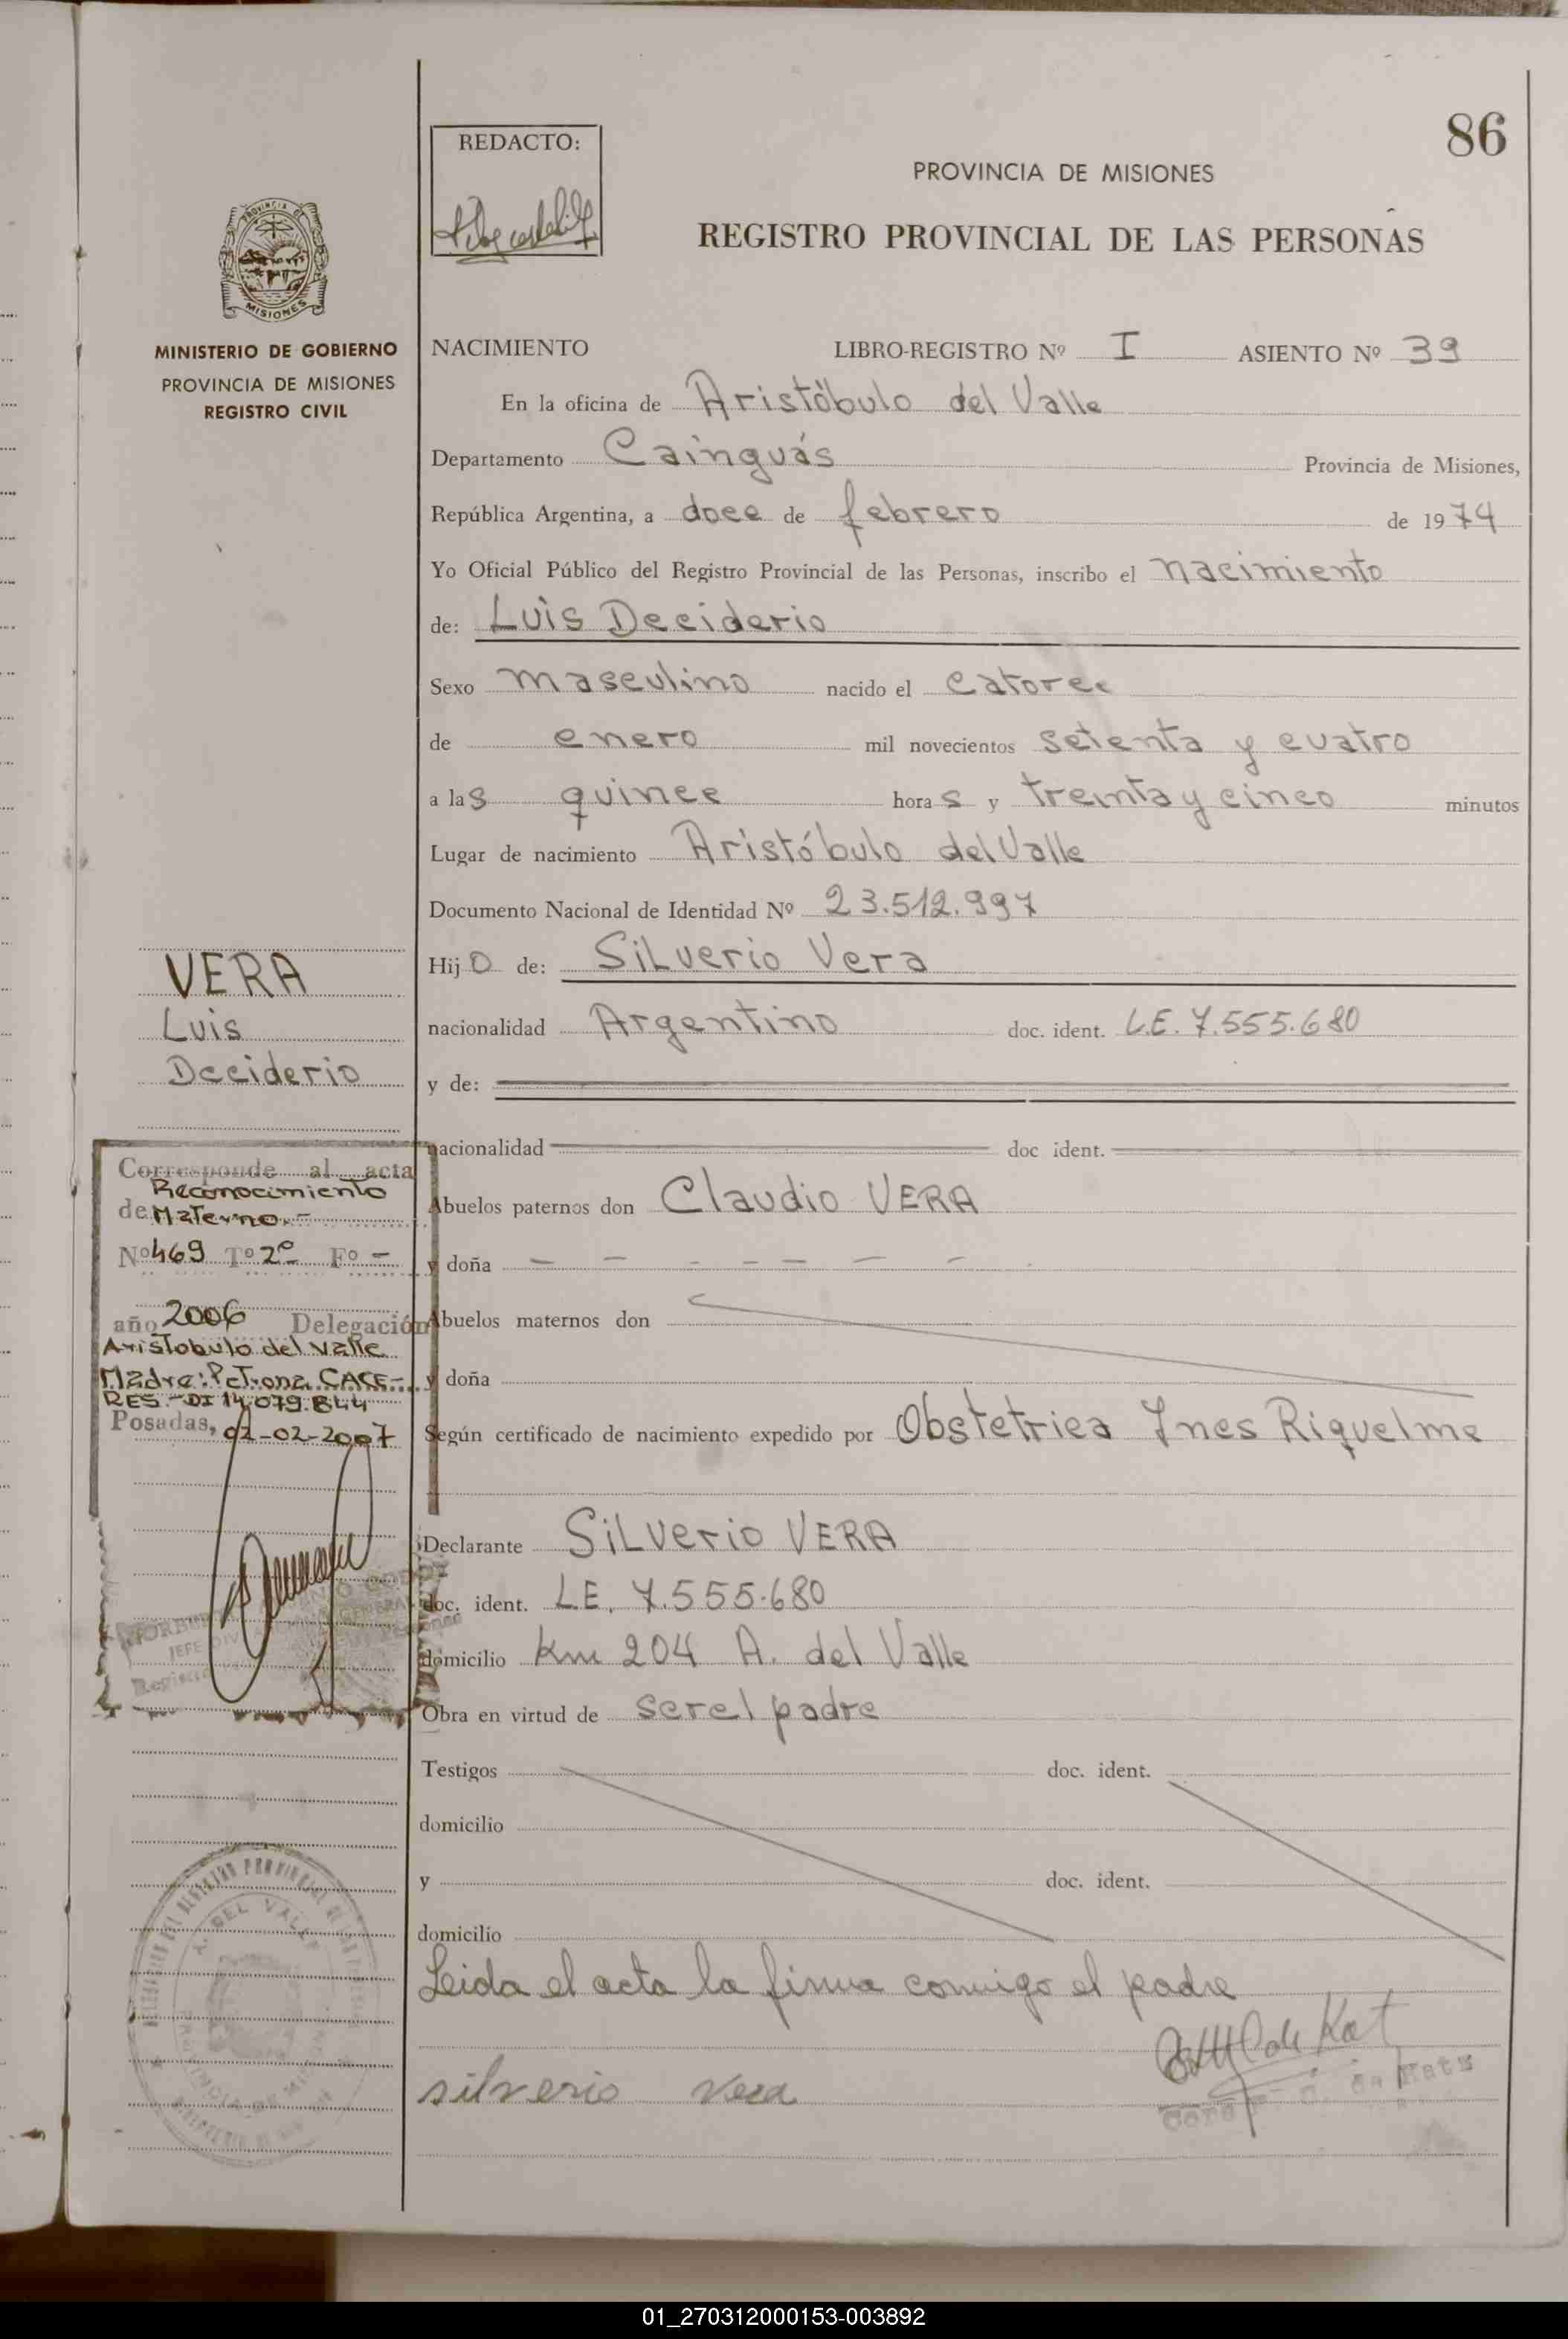 86
REDACTO:
PROVINCIA DE MISIONES
REGISTRO PROVINCIAL DE LAS PERSONAS
PROVINCIA DE
MISIONES
MINISTERIO DE GOBIERNO
PROVINCIA DE MISIONES
REGISTRO CIVIL
NACIMIENTO LIBRO-REGISTRO Nº I ASIENTO Nº 39
En la oficina de Aristóbulo del Valle
Departamento Cainguás Provincia de Misiones,
República Argentina, a doce de febrero de 1974
Yo Oficial Público del Registro Provincial de las Personas, inscribo el nacimiento
de: Luis Deciderio
Sexo masculino nacido el catorce
de enero mil novecientos setenta y cuatro
a las quince horas y treinta y cinco minutos
Lugar de nacimiento Aristóbulo del Valle
Documento Nacional de Identidad Nº 23.512.997
Hijo de: Silverio Vera
nacionalidad Argentino doc. ident. L.E. 7.555.680
y de:
nacionalidad doc ident.
Abuelos paternos don Claudio VERA
y doña — — — — — — —
Abuelos maternos don
y doña
Según certificado de nacimiento expedido por Obstetrica Ines Riquelme
Declarante Silverio VERA
doc. ident. L.E. 7.555.680
domicilio Km 204 A. del Valle
Obra en virtud de ser el padre
Testigos doc. ident.
domicilio
y doc. ident.
domicilio
Leida el acta la firma conmigo el padre
silverio vera
VERA
Luis
Deciderio
Corresponde al acta
Reconocimiento
de Materno.-
Nº 469 Tº 2º Fº -
año 2006 Delegación
Aristobulo del Valle
Madre: Petrona CACE-
RES.- DI 14.079.844
Posadas, 02-02-2007
A. DEL VALLE
01_270312000153-003892